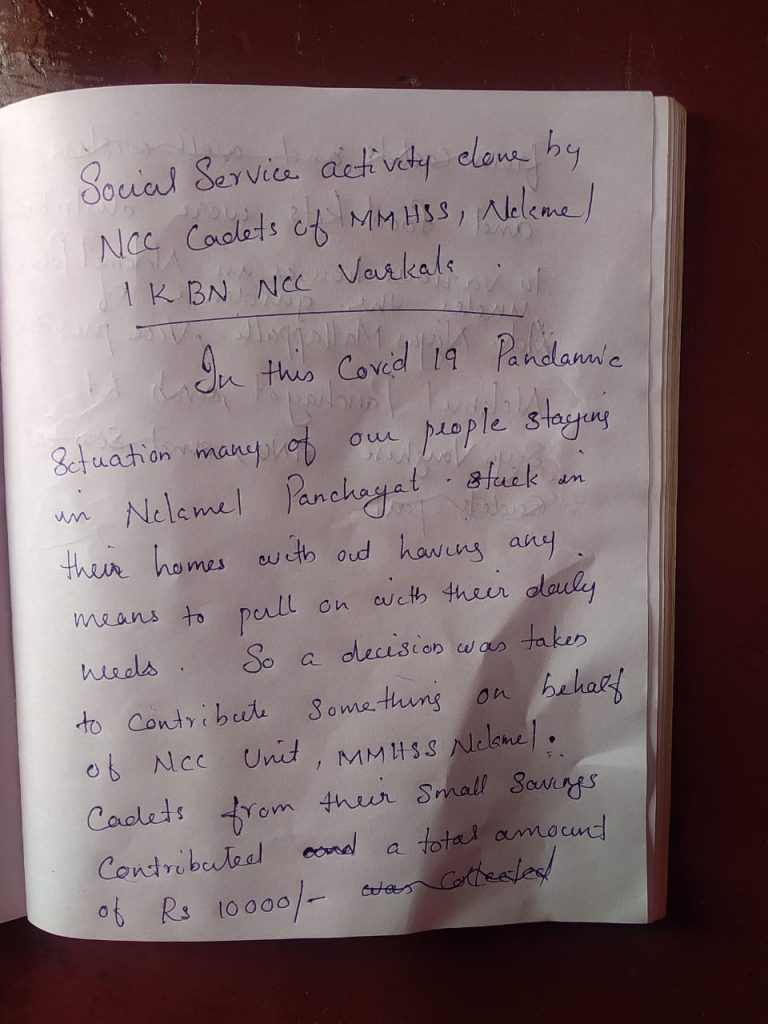 Social Service activity done by
NCC Cadets of MMHSS, Nclamel
1 K BN NCC Varkala
In this Covid 19 Pandamic
Situation many of our people staying
in Nclamel Panchayat stuck in
their homes with out having any
means to pull on with their daily
needs. So a decision was taken
to contribute something on behalf
of NCC Unit, MMHSS Nclamel.
Cadets from their small savings
Contributed and a total amount
of Rs 10000/- was collected